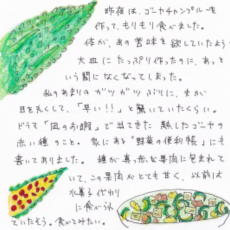 昨夜は、ゴーヤチャンプルーを
作って、もりもり食べました。
体が、あの苦味を欲していたよう
大皿にたっぷり作ったのに、あっと
いう間になくなってしまった。
私のあまりのガツガツぶりに、夫が
目を丸くして、「早い!!」と驚いていたくらい。
ドラマ「凪のお暇」で出てきた熟したゴーヤの
赤い種のこと。家にある「野菜の便利帳」にも
書いてありました。種が真っ赤な果肉に包まれて
いて、この果肉がとても甘く、以前は
水菓子代わり
に食べられ
ていたそう。食べてみたい。